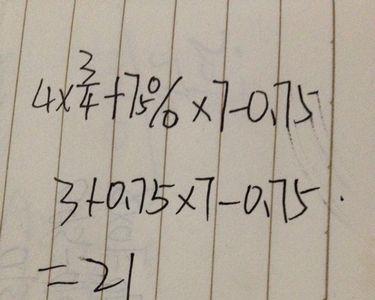 4×3/4+75%×7-0.75
3+0.75×7-0.75.
=21